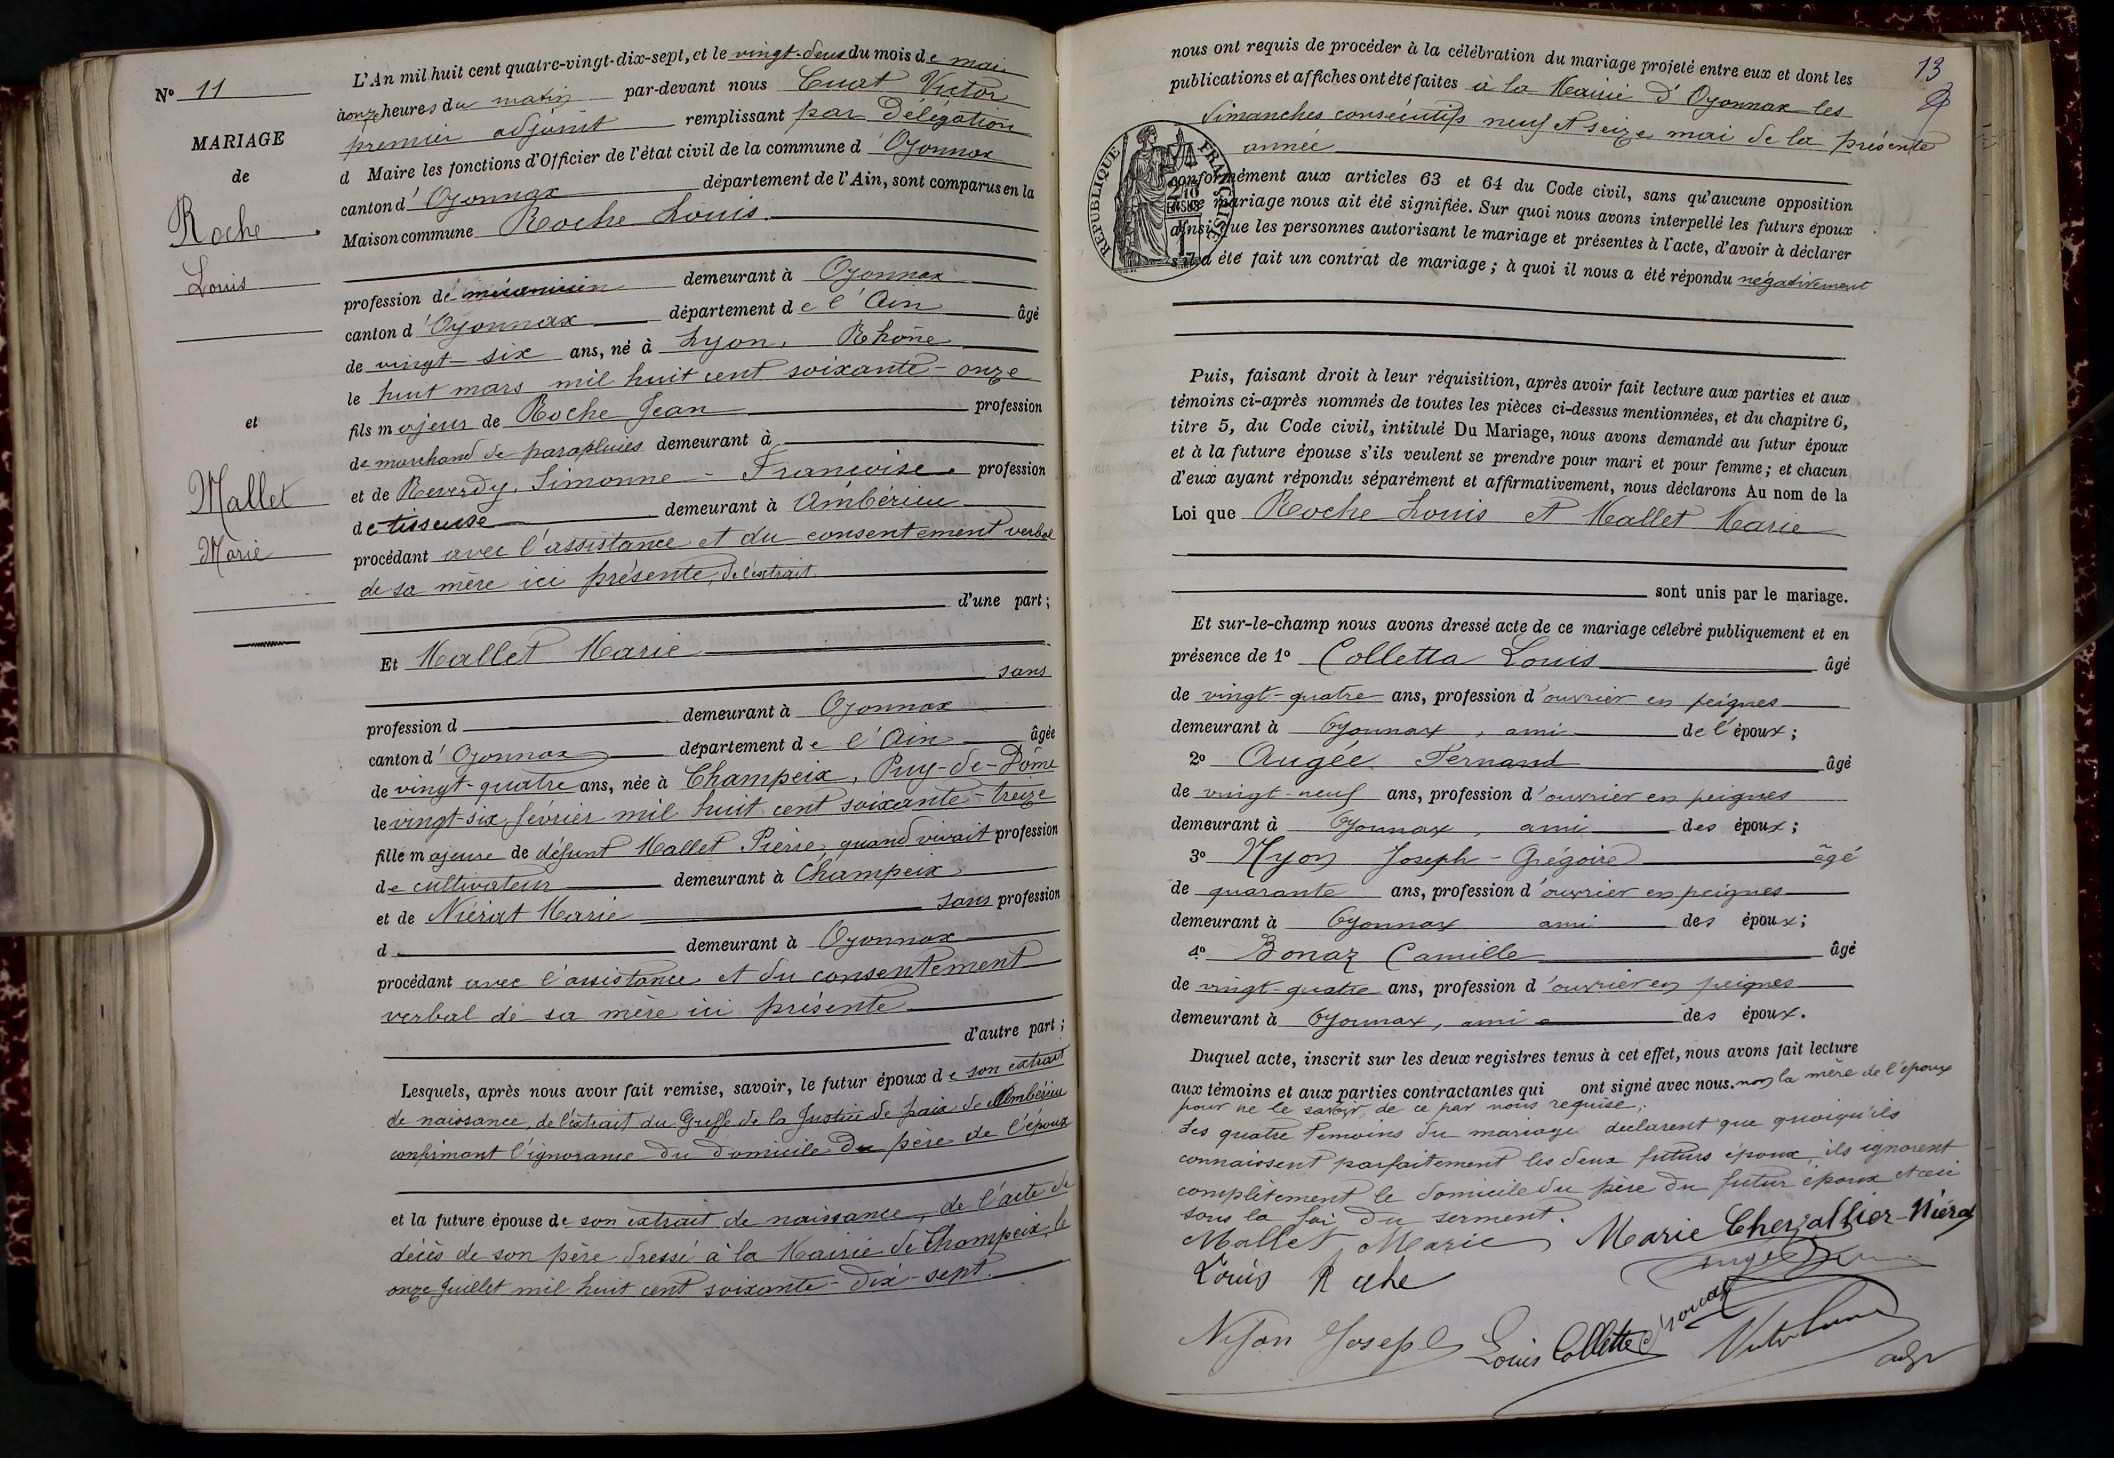 N° 11
MARIAGE
de
Roche
Louis
et
Mallet
Marie
L'An mil huit cent quatre-vingt-dix-sept, et le vingt-deux du mois de mai
à onze heures du matin par-devant nous Cuat Victor
premier adjoint remplissant par Délégation
d Maire les fonctions d'Officier de l'état civil de la commune d'Oyonnax
canton d'Oyonnax département de l'Ain, sont comparus en la
Maison commune Roche Louis
profession de mécanicien demeurant à Oyonnax
canton d'Oyonnax département de l'Ain âgé
de vingt-six ans, né à Lyon, Rhône
le huit mars mil huit cent soixante-onze
fils majeur de Roche Jean profession
de marchand de parapluies demeurant à
et de Reverdy, Simonne-Françoise profession
de tisseuse demeurant à Ambérieu
procédant avec l'assistance et du consentement verbal
de sa mère ici présente, de l'extrait
d'une part;
Et Mallet Marie
sans
profession d demeurant à Oyonnax
canton d'Oyonnax département de l'Ain âgée
de vingt-quatre ans, née à Champeix, Puy-de-Dôme
le vingt-six février mil huit cent soixante-treize
fille majeure de défunt Mallet Pierre, quand vivait profession
de cultivateur demeurant à Champeix
et de Niérat Marie sans profession
d demeurant à Oyonnax
procédant avec l'assistance et du consentement
verbal de sa mère ici présente
d'autre part;
Lesquels, après nous avoir fait remise, savoir, le futur époux de son extrait
de naissance, de l'extrait du Greffe de la Justice de paix de Ambérieu
confirmant l'ignorance du domicile du père de l'époux
et la future épouse de son extrait de naissance, de l'acte de
décès de son père dressé à la Mairie de Champeix, le
onze Juillet mil huit cent soixante-dix-sept.
13
nous ont requis de procéder à la célébration du mariage projeté entre eux et dont les
publications et affiches ont été faites à la Mairie d'Oyonnax les
dimanches consécutifs neuf et seize mai de la présente
année
RÉPUBLIQUE FRANÇAISE
conformément aux articles 63 et 64 du Code civil, sans qu'aucune opposition
à ce mariage nous ait été signifiée. Sur quoi nous avons interpellé les futurs époux
ainsi que les personnes autorisant le mariage et présentes à l'acte, d'avoir à déclarer
s'il a été fait un contrat de mariage; à quoi il nous a été répondu négativement
Puis, faisant droit à leur réquisition, après avoir fait lecture aux parties et aux
témoins ci-après nommés de toutes les pièces ci-dessus mentionnées, et du chapitre 6,
titre 5, du Code civil, intitulé Du Mariage, nous avons demandé au futur époux
et à la future épouse s'ils veulent se prendre pour mari et pour femme; et chacun
d'eux ayant répondu séparément et affirmativement, nous déclarons Au nom de la
Loi que Roche Louis et Mallet Marie
sont unis par le mariage.
Et sur-le-champ nous avons dressé acte de ce mariage célébré publiquement et en
présence de 1° Colletta Louis âgé
de vingt-quatre ans, profession d'ouvrier en peignes
demeurant à Oyonnax, ami de l'époux;
2° Augée Fernand âgé
de vingt-neuf ans, profession d'ouvrier en peignes
demeurant à Oyonnax, ami des époux;
3° Nyon Joseph-Grégoire âgé
de quarante ans, profession d'ouvrier en peignes
demeurant à Oyonnax ami des époux;
4° Bonaz Camille âgé
de vingt-quatre ans, profession d'ouvrier en peignes
demeurant à Oyonnax, ami des époux.
Duquel acte, inscrit sur les deux registres tenus à cet effet, nous avons fait lecture
aux témoins et aux parties contractantes qui ont signé avec nous. non la mère de l'époux
pour ne le savoir, de ce par nous requise;
Les quatre témoins du mariage déclarent que quoiqu'ils
connaissent parfaitement les deux futurs époux, ils ignorent
complètement le domicile du père du futur époux et ceci
sous la foi du serment.
Mallet Marie Marie Chevallier-Niérat
Louis Roche
Nyon Joseph Louis Colletta C Bonaz